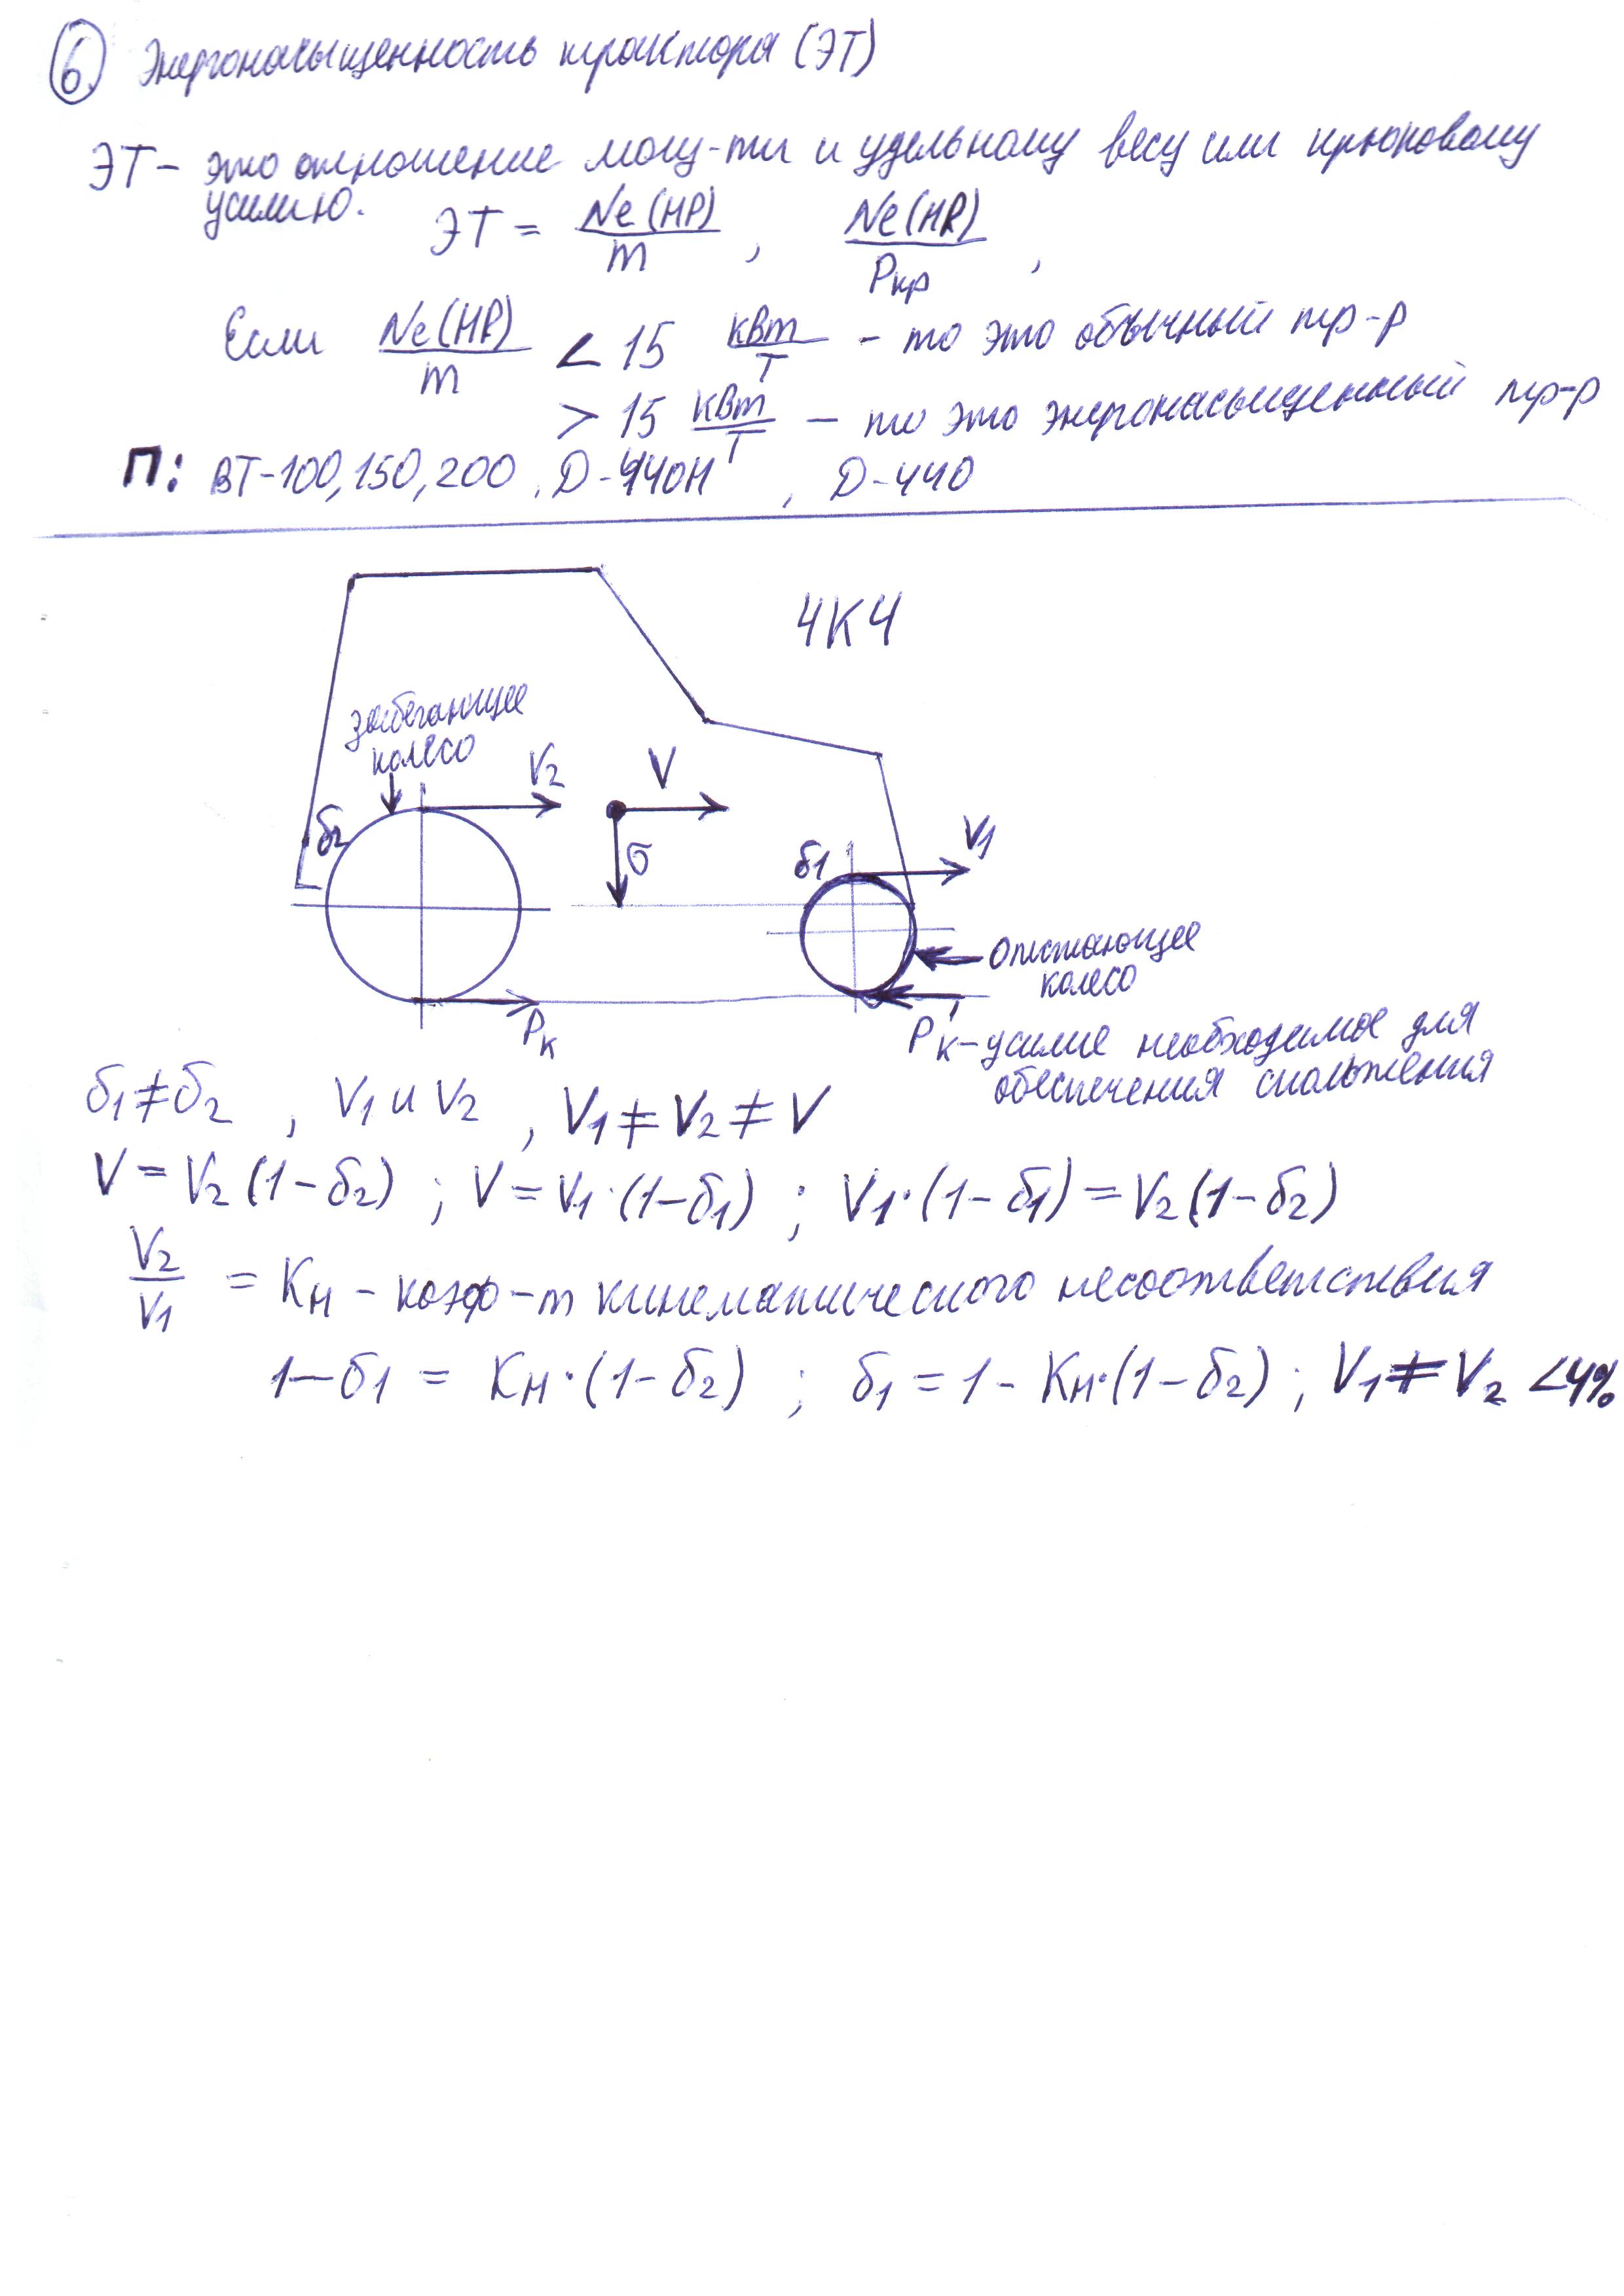 6. Энергонасыщенность трактора (ЭТ)
ЭТ – это отношение мощ-ти и удельному весу или крюковому
усилию. ЭТ = Ne(HP)/m , Ne(HP)/Pкр ,
Если Ne(HP)/m < 15 кВт/Т – то это обычный тр-р
> 15 кВт/Т – то это энергонасыщенный тр-р
П: ВТ-100,150,200, Д-440Н, Д-440
4К4
забегающее
колесо
V2
V
δ2
G
δ1
V1
Отстающее
колесо
Pк
P'к – усилие необходимое для
обеспечения скольжения
δ1≠δ2 , V1 и V2 , V1 ≠ V2 ≠ V
V = V2 (1-δ2) ; V = V1·(1-δ1) ; V1·(1-δ1) = V2(1-δ2)
V2/V1 = Kн – коэф-т кинематического несоответствия
1-δ1 = Kн·(1-δ2) ; δ1 = 1 - Kн·(1-δ2) ; V1 ≠ V2 <4%